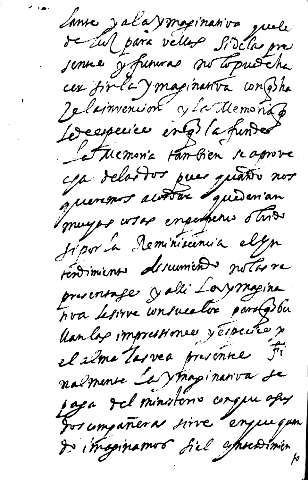 tante y a la ymaginativa que le
de luz para verlas si de las pre
sentes y futuras no lo puede ha
cer sin la ymaginativa con q̃ ha
ze la invencion y la memoria q̃
le de especies en q̃ la funde
La memoria tambien se aprove
cha de las dos pues quando nos
queremos acordar quedarian
muchas cosas en perpetuo olvido
si por la Reminiscencia el en
tendimiento discurriendo no las re
presentase y alli la ymagina
tiva le sirve con su calor para q̃ bu
llan las impressiones y especies y
el alma las vea presentes fi
nalmente la ymaginativa se
paga del ministerio con que a sus
dos compañeras sirve en que quan
do imaginamos si el entendimien